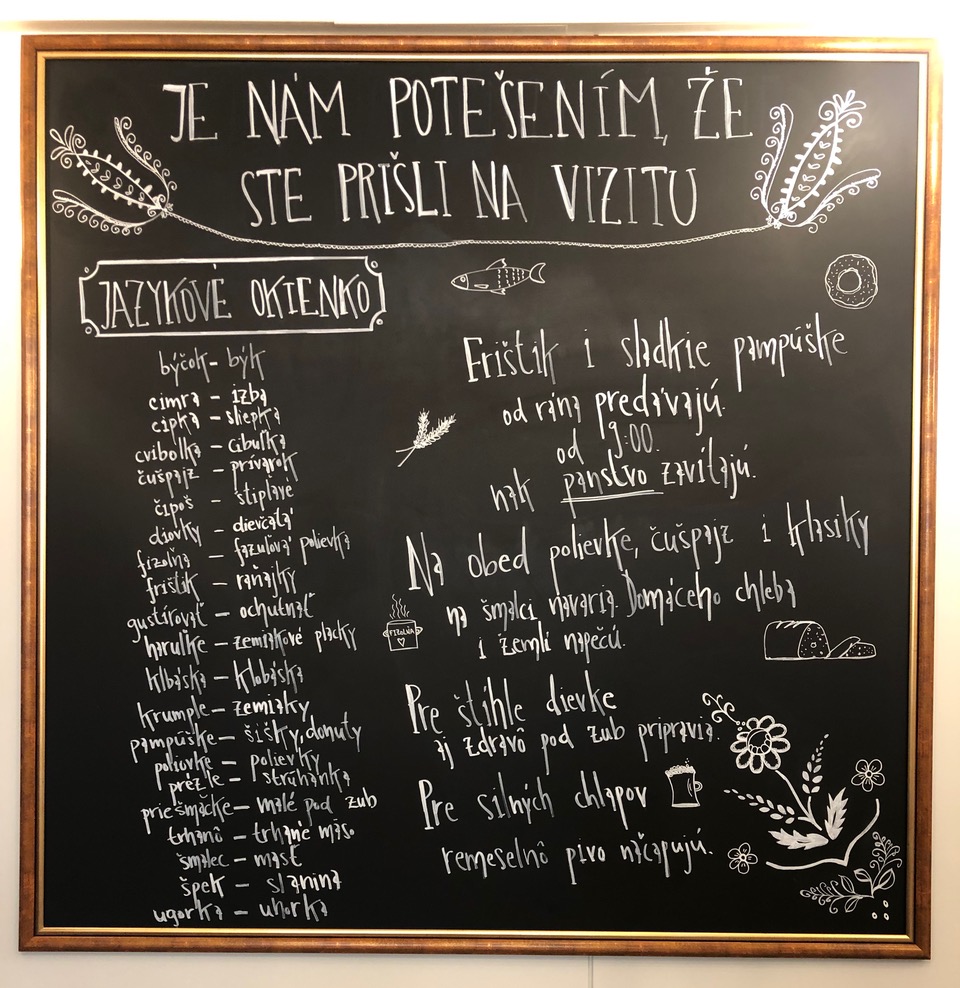 JE NÁM POTEŠENÍM, ŽE
STE PRIŠLI NA VIZITU
JAZYKOVÉ OKIENKO
býčok - býk
cimra - izba
cipka - sliepka
cvibolka - cibuľka
čušpajz - prívarok
čipoš - štiplavé
diovky - dievčatá
fizolňa - fazuľová polievka
frištik - raňajky
gustírovať - ochutnať
haruľke - zemiakové placky
klbáska - klobáska
krumple - zemiaky
pampúške - šišky, donuty
poliovke - polievky
prézle - strúhanka
priešmäčke - malé pod zub
trhanô - trhané mäso
šmalec - masť
špek - slanina
ugorka - uhorka
Frištik i sladkie pampúške
od rána predávajú.
od 9:00.
nak panstvo zavítajú.
Na obed polievke, čušpajz i klasiky
na šmalci navaria. Domáceho chleba
i žemlí napečú.
FIZOLŇA
Pre štíhle dievke
aj zdravô pod zub pripravia.
Pre silných chlapov
remeselnô pivo načapujú.